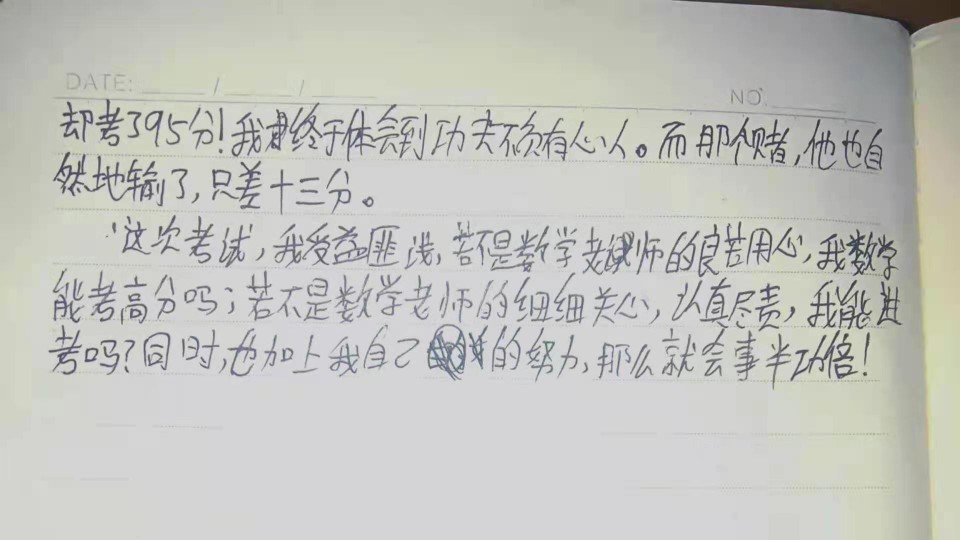 DATE: / /
NO.
却考了95分!我终于体会到功夫不负有心人。而那个赌,他也自
然地输了,只差十三分。
这次考试,我受益匪浅,若不是数学老师的良苦用心,我数学
能考高分吗;若不是数学老师的细细关心,认真尽责,我能进
考吗?同时,也加上我自己的努力,那么就会事半功倍!